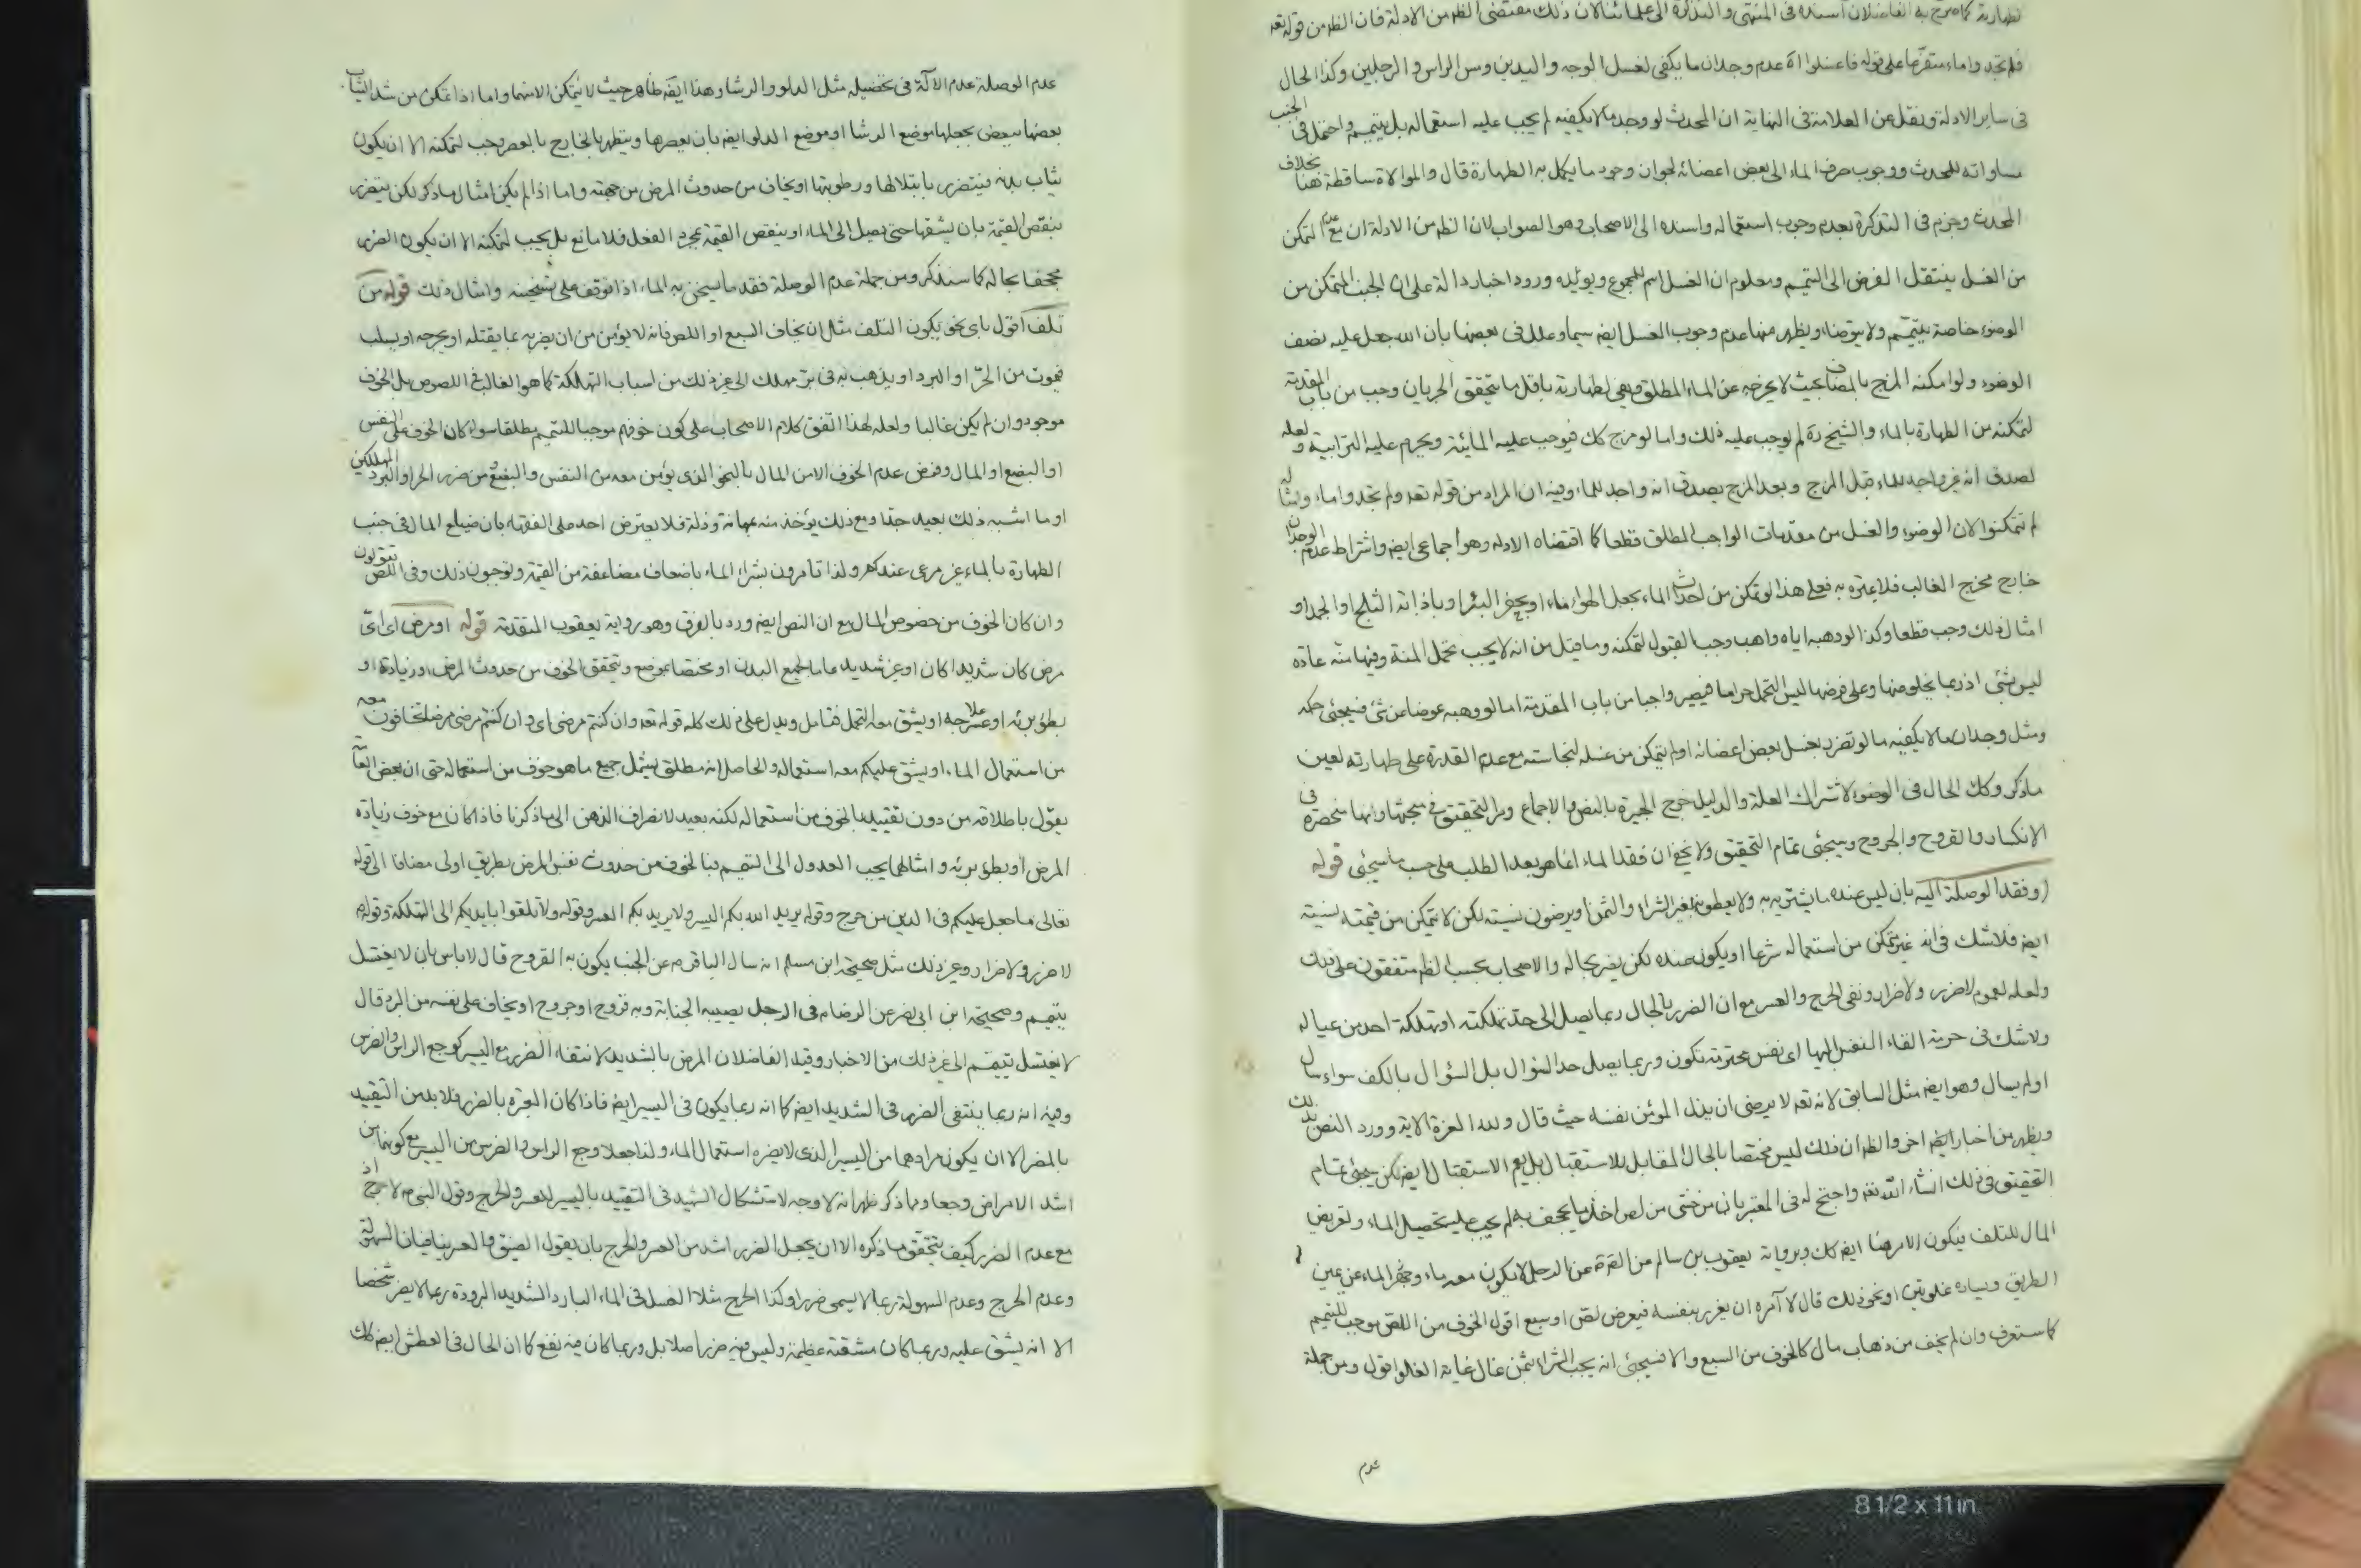 لطهارته كما صرح به الفاضلان اسنده فى المنتهى والتذكرة الى علمائنا لان ذلك مقتضى الظهر من الادلة فان الظهر من قوله تعه
فلم تجدوا ماء متفرعا على قوله فاغسلوا اه عدم وجدان ما يكفى لغسل الوجه واليدين ومس الراس والرجلين وكذا الحال
فى ساير الادلة ونقل عن العلامة فى النهاية ان المحدث لو وجد ما لا يكفيه لم يجب عليه استعماله بل يتيمم واحتمل فى الجنب
مساواته للمحدث ووجوب صرف الماء الى بعض اعضائه لجواز وجود ما يكمل به الطهارة قال والموالاة ساقطة هنا بخلاف
المحدث وجزم فى التذكرة بعدم وجوب استعماله واسنده الى الاصحاب وهو الصواب لان الظهر من الادلة ان مع عدم التمكن
من الغسل ينتقل الفرض الى التيمم ومعلوم ان الغسل اسم للمجموع ويؤيده ورود اخبار دالة على ان الجنب المتمكن من
الوضوء خاصة يتيمم ولا يتوضا ويظهر منها عدم وجوب الغسل ايضه سيما وعلل فى بعضها بان الله جعل عليه نصف
الوضوء ولو امكنه المزج بالمضاف بحيث لا يخرجه عن الماء المطلق ويفى لطهارته باقل ما يتحقق الجريان وجب من باب المقدمة
لتمكنه من الطهارة بالماء والشيخ ره لم يوجب عليه ذلك واما لو مزج كك فيوجب عليه المائية ويحرم عليه الترابية ولعله
لصدق انه غير واجد للماء قبل المزج وبعد المزج يصدق انه واجد للماء وفيه ان المراد من قوله تعه ولم تجدوا ماء وامثاله
لم تتمكنوا لان الوضوء والغسل من مقدمات الواجب المطلق قطعا كما اقتضاه الادله وهو اجماعى ايضه واشتراط عدم الوجدان
خارج مخرج الغالب فلا عبرة به فعلى هذا لو تمكن من احداث الماء بجعل الهواء ماء او بحفر البئر او باذابة الثلج او الجمد او
امثال ذلك وجب قطعا وكذا لو وهبه اياه واهب وجب القبول لتمكنه وما قيل من انه لا يجب تحمل المنة وفيها منه عادة
ليس بشئ اذ ربما يخلو منها وعلى فرضها ليس التحمل حراما فيصير واجبا من باب المقدمة اما لو وهبه عوضا عن شئ فسيجئى حكمه
ومثل وجدان ما لا يكفيه ما لو تضرر بغسل بعض اعضائه او لم يتمكن من غسله لنجاسته مع عدم القدرة على طهارته لعين
ماذكر وكك الحال فى الوضوء لاشتراك العلة والدليل خرج الجبيرة بالنص والاجماع ومر التحقيق فى مبحثها وانها منحصرة فى
الانكسار والقروح والجروح وسيجئى تمام التحقيق ولا يخفى ان فقد الماء انما هو بعد الطلب على حسب ما سيجئى قوله
(وفقد الوصلة اليه بان ليس عنده ما يشتريه به ولا يعطونه بغير الشراء والثمن او يرضون بنسيته لكن لا يتمكن من قيمته بنسيته
ايضه فلا شك فى انه غير متمكن من استعماله شرعا او يكون عنده لكن يضر بحاله والاصحاب بحسب الظهر متفقون على ذلك
ولعله لعموم لا ضرر ولا ضرار ونفى الحرج والعسر مع ان الضرر بالحال ربما يصل الى حد تهلكته او تهلكة احد من عياله
ولا شك فى حرمة القاء النفس اليها اى نفس محترمة تكون وربما يصل حد السؤال بل السؤال بالكف سواء سال
او لم يسال وهو ايضه مثل السابق لانه تعه لا يرضى ان يذل المؤمن نفسه حيث قال ولله العزة الاية وورد النص بذلك
ويظهر من اخبار ايضه اخر والظهر ان ذلك ليس مختصا بالحال المقابل للاستقبال بل يعم الاستقبال ايضه لكن سيجئى تمام
التحقيق فى ذلك انشاء الله تعه واحتج له فى المعتبر بان من خشى من لص اخذ ما يجحف به لم يجب عليه تحصيل الماء وتعريض
المال للتلف فيكون الامر هنا ايضه كك وبرواية يعقوب بن سالم من الصه عن الرجل لا يكون معه ماء والماء عن يمين
الطريق ويساره غلوتين او نحو ذلك قال لا آمره ان يغرر بنفسه فيعرض لص او سبع اقول الخوف من اللص موجب للتيمم
كما ستعرف وان لم يخف من ذهاب مال كالخوف من السبع والا فسيجئى انه يجب الشراء بثمن غال غاية الغلو اقول ومن جملة
عدم
عدم الوصلة عدم الآلة فى تحصيله مثل الدلو والرشا وهذا ايضه ظاهر حيث لا يتمكن الا بهما واما اذا تمكن من شد الثياب
بعضها ببعض بجعلها موضع الرشا او موضع الدلو ايضه بان يعصرها ويتطهر بالخارج بالعصر وجب لتمكنه الا ان يكون
ثياب بدنه فيتضرر بابتلالها ورطوبتها او يخاف من حدوث المرض من جهته واما اذا لم يكن امثال ما ذكر لكن يتضرر
بنقص القيمة بان يشقها حتى يصل الى الماء او ينقص القيمة بمجرد الفعل فلا مانع بل يجب لتمكنه الا ان يكون الضرر
مجحفا بحاله كما سنذكر ومن جملة عدم الوصلة فقد ما يسخن به الماء اذا توقف على تسخينه وامثال ذلك قوله من
تلف اقول باى نحو يكون التلف مثل ان يخاف السبع او اللص فانه لا يؤمن من ان يضربه بما يقتله او يجرحه او يسلب
فيموت من الحر او البرد او يذهب به فى بر مهلك الى غير ذلك من اسباب التهلكة كما هو الغالب فى اللصوص بل الخوف
موجود وان لم يكن غالبا ولعله لهذا اتفق كلام الاصحاب على كون خوفهم موجبا للتيمم مطلقا سواء كان الخوف على النفس
او البضع او المال وفرض عدم الخوف الا من المال بالنحو الذى يؤمن معه من النفس والبضع ومن ضرر الحر والبرد المهلكين
او ما اشبه ذلك بعيد جدا ومع ذلك يؤخذ منه بمهانة وذلة فلا يعترض احد على الفقهاء بان ضياع المال فى جنب
الطهارة بالماء غير مرعى عندكم ولذا تامرون بشراء الماء باضعاف مضاعفة من القيمة وتوجبون ذلك وفى اللص تقولون
وان كان الخوف من خصوص المال مع ان النص ايضه ورد بالفرق وهو رواية يعقوب المتقدمة قوله او مرض اى اى
مرض كان شديدا كان او غير شديد عاما لجميع البدن او مختصا بموضع ويتحقق الخوف من حدوث المرض او زيادة او
بطؤ برئه او عسر علاجه او يشق معه التحمل فتامل ويدل على ذلك كله قوله تعه وان كنتم مرضى اى وان كنتم مرضى مرضا تخافون معه
من استعمال الماء او يشق عليكم معه استعماله والحاصل انه مطلق يشمل جميع ما هو خوف من استعماله حتى ان بعض العامة
يقول باطلاقه من دون تقييد بالخوف من استعماله لكنه بعيد لانصراف الذهن الى ما ذكرنا فاذا كان مع خوف زيادة
المرض او بطؤ برئه وامثالهما يجب العدول الى التيمم فبالخوف من حدوث نفس المرض بطريق اولى مضافا الى قوله
تعالى ما جعل عليكم فى الدين من حرج وقوله يريد الله بكم اليسر ولا يريد بكم العسر وقوله ولا تلقوا بايديكم الى التهلكة وقوله
لا ضرر ولا ضرار وغير ذلك مثل صحيحة ابن مسلم انه سال الباقر م عن الجنب يكون به القروح قال لا باس بان لا يغتسل
يتيمم وصحيحة ابن ابى نصر عن الرضا م فى الرجل يصيبه الجنابة وبه قروح او جروح او يخاف على نفسه من البرد قال
لا يغتسل يتيمم الى غير ذلك من الاخبار وقيد الفاضلان المرض بالشديد لانتفاء الضرر مع اليسير كوجع الراس والضرس
وفيه انه ربما ينتفى الضرر فى الشديد ايضه كما انه ربما يكون فى اليسير ايضه فاذا كان العبرة بالضرر فلا بد من التقييد
بالمضر الا ان يكون مرادهما من اليسير الذى لا يضره استعمال الماء ولذا جعلا وجع الراس والضرس من اليسير مع كونهما من
اشد الامراض وجعا ومما ذكر ظهر انه لا وجه لاستشكال الشهيد فى التقييد باليسير للعسر والحرج وقول النبى م لا ضرر اذ
مع عدم الضرر كيف يتحقق ما ذكره الا ان يجعل الضرر اشد من العسر والحرج بان يقول الضيق والعسر ينافيان السهولة
وعدم الحرج وعدم السهولة ربما لا يسمى ضررا وكذا الحرج مثلا الغسل فى الماء البارد الشديد البرودة ربما لا يضر شخصا
الا انه يشق عليه وربما كان مشقته عظيمة وليس فيه ضرر اصلا بل وربما كان فيه نفع كما ان الحال فى العطش ايضه كك
8 1/2 x 11 in.